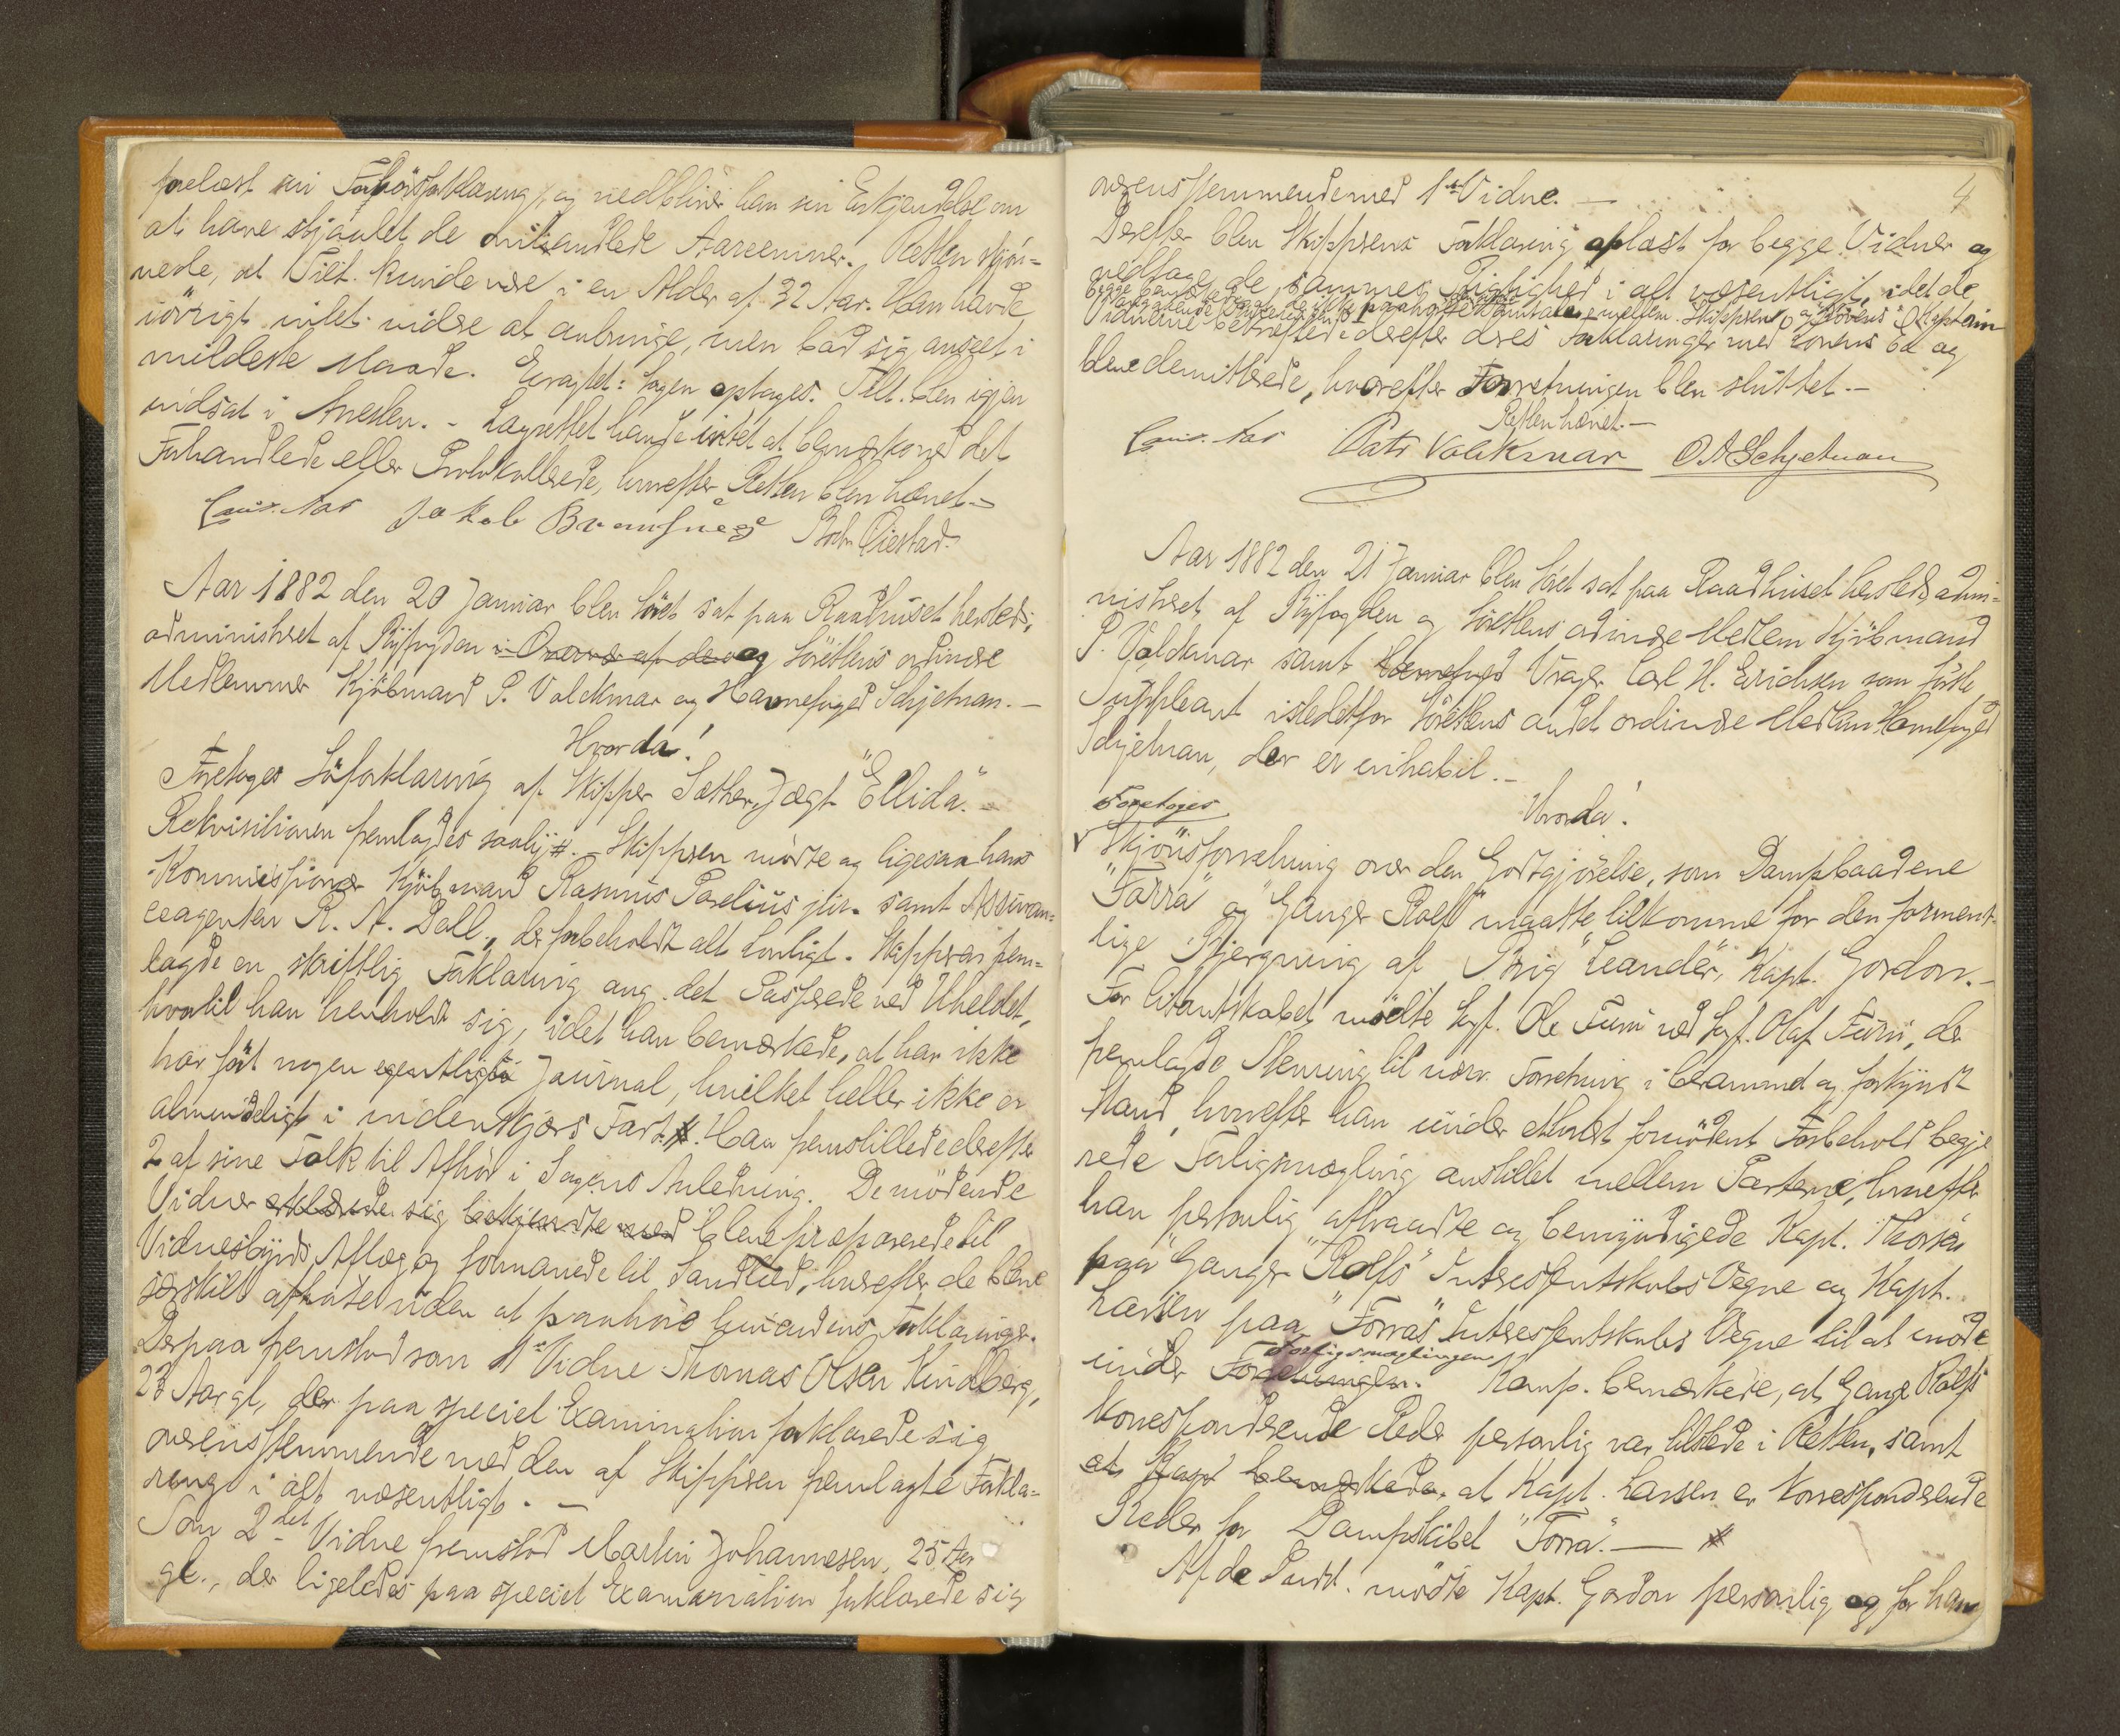 forelæst sin Forhørsforklaring, og vedblive han sin Erkjendelse om
at have stjaalet de omhandlede Aareemner. Retten skjøn-
nede, at Tilt. kunde være i en Alder af 32 Aar. Han havde
iøvrigt intet videre at anbringe, men bad sig anseet i
mildeste Maade. Eragtet: Sagen optages. Tilt. blev igjen
indsat i Aresten. - Lagrettet havde intet at bemærke ved det
Forhandlede eller Protokollerede, hvorefter Retten blev hævet. -
Jakob Bræmsnæs
Aar 1882 den 20 Januar blev Søret sat paa Raadhuset hersteds,
administreret af Byfogden og Sørettens ordinære
Medlemmer Kjøbmand P. Volckmar og Havnefoged Schjetnan. -
Hvorda!
Foretoges Søforklaring af Skipper Sæther, Jægt "Ellida." -
Rekvisitionen fremlagdes saalyd. - Skipperen mødte og ligesaa hans
Kommissionær Kjøbmand Rasmus Parelius jun. samt Assuran-
ceagenten R. A. Dall, der forbeholdt alt Lovligt. Skipperen frem-
lagde en skriftlig Forklaring ang. det Passerede ved Uheldet,
hvortil han henholdt sig, idet han bemærkede, at han ikke
har ført nogen egentlig Journal, hvilket heller ikke er
almindeligt i indenskjærs Fart. Han fremstillede derefter
2 af sine Folk til Afhør i Sagens Anledning. De mødende
Vidner erklærede sig bekjendte med bleve præparerede til
Vidnesbyrds Aflæg og formanede til Sandhed, hvorefter de bleve
særskilt afhørte uden at paahøre hinandens Forklaringer.
Derpaa fremstod som 1ste Vidne Thomas Olsen Kindberg,
23 Aar gl., der paa speciel Examination forklarede sig
overensstemmende med den af Skipperen fremlagte Forkla-
ring i alt væsentligt. -
Som 2det Vidne fremstod Martin Johannesen, 25 Aar
gl., der ligeledes paa speciel Examination forklarede sig
4
overensstemmende med 1ste Vidne. -
Derefter blev Skipperens Forklaring oplæst for begge Vidner og
vedtage de sammes Rigtighed i alt væsentligt, idet de
Vidnerne bekræftede derefter deres Forklaringer med Lovens Ed og
bleve demitterede, hvorefter Forretningen blev sluttet. -
Retten hævet. -
Patr Volckmar O A Schjetnan
Aar 1882 den 21 Januar blev Søret sat paa Raadhuset hersteds, admi-
nistreret af Byfogden og Sørettens ordinære Medlem Kjøbmand
P. Voldkmar samt Havnefoged Vrager Carl H. Erichsen som første
Suppleant istedetfor Sørettens andet ordinære Medlem Havnefoged
Schjetnan, der er inhabil. -
Hvorda!
Foretoges
Skjønsforretning over den Godtgjørelse, som Dampbaadene
"Forra" og "Ganger Rolf" maatte tilkomme for den forment-
lige Bjergning af Brig "Leander", Kapt. Gordon. -
For Citantskabet mødte Sagf. Ole Furu ved Sagf. Olaf Furu, der
fremlagde Stevning til nærv. Forretning i beramand og forkyndt
Stand, hvorefter han under ethvert fornødent Forbehold begje-
rede Forligsmægling anstillet mellem Parterne, hvorefter
han personlig aftraadte og bemyndigede Kapt. Thorsen
paa "Ganger Rolfs" Interessentskabs Vegne og Kapt.
Larsen paa "Forras" Interessentskabs Vegne til at møde
Forligsmæglingen
under Forretningen. Komp. bemærkede, at Ganger Rolfs
korresponderende Reder personlig var tilstede i Retten, samt
at Kapt bemærkede, at Kapt. Larsen er korresponderende
Reder for Dampskibet "Forra". -
Af de Indst. mødte Kapt. Gordon personlig og for ham